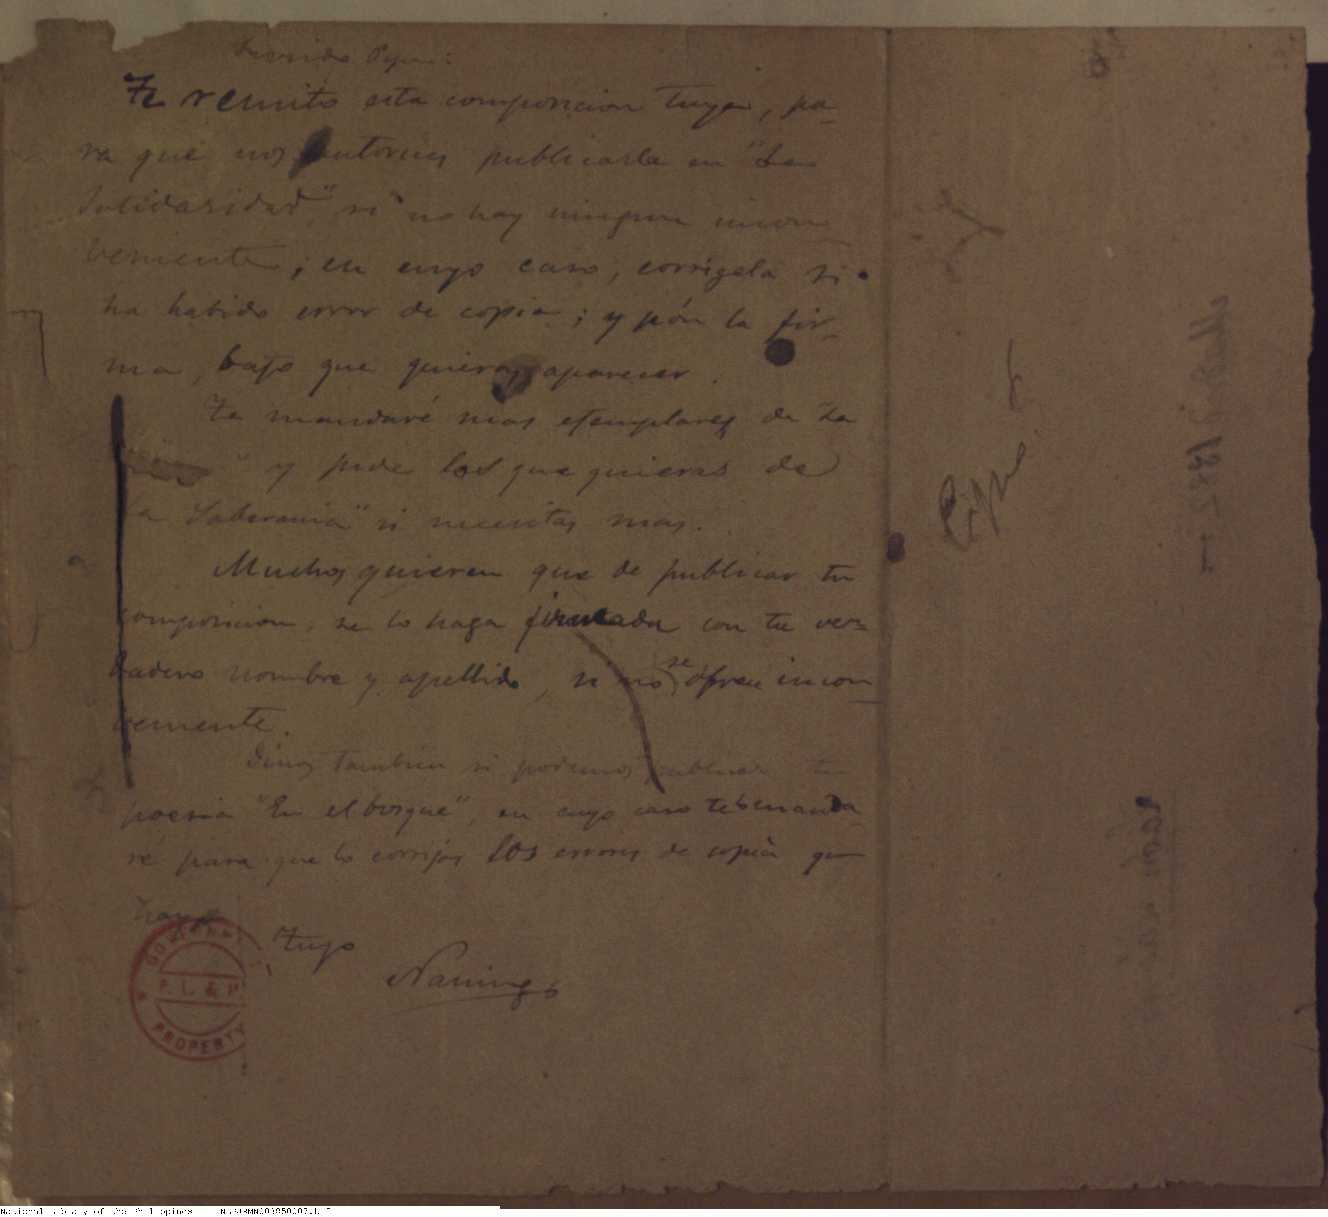 Querido Pepe:
Te remito esta composicion tuya, pa-
ra que nos autorices publicarla en "La
Solidaridad" si no hay ningun incon-
veniente; en cuyo caso, corrígela si
ha habido error de copia; y pón la fir-
ma, bajo que quieras aparecer.
Te mandaré mas ejemplares de La
" y pide los que quieras de
La Soberania" si necesitas mas.
Muchos quieren que de publicar tu
composicion, se lo haga firmada con tu ver-
dadero nombre y apellido, si no se ofrece incon-
veniente.
Dinos tambien si podemos publicar tu
poesia "En el bosque", en cuyo caso te la manda
ré para que lo corrijas los errores de copia que
haya
Tuyo
Naning
GOVERNMENT
P. L. & M.
PROPERTY
National Library of the Philippines